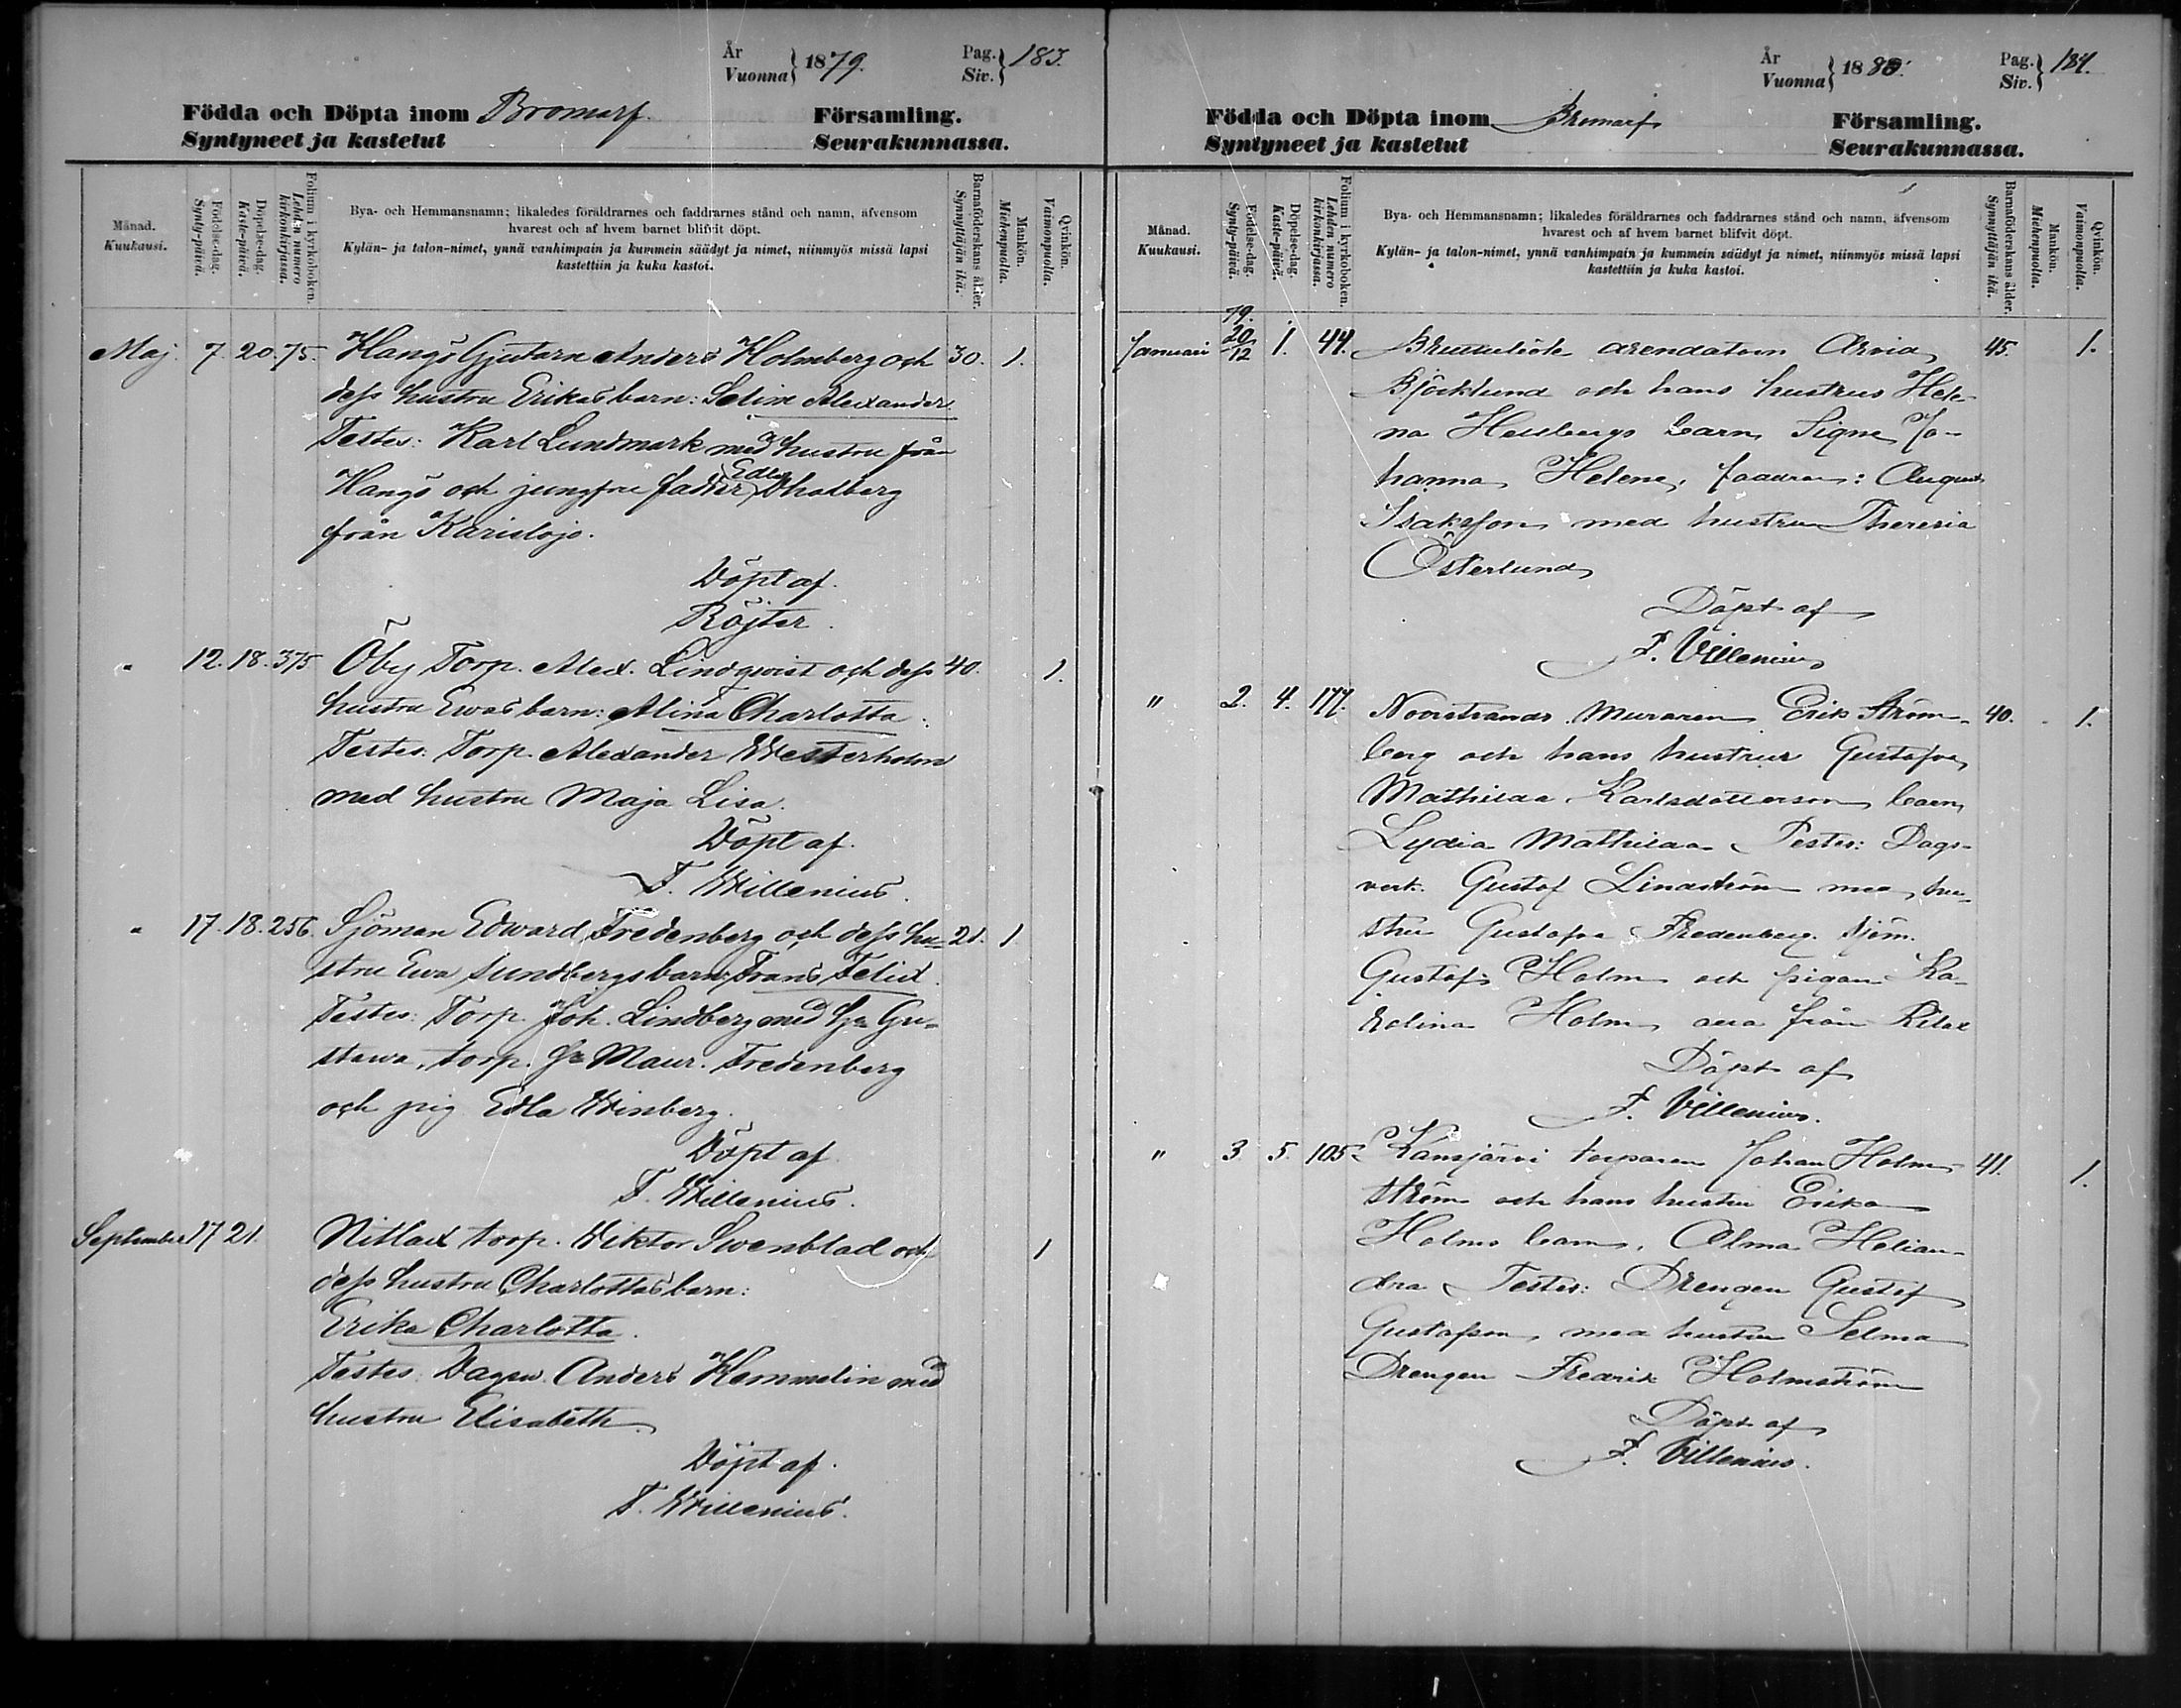 År
Vuonna } 1879.
Pag.
Siv. } 183.
Födda och Döpta inom Bromarf. Församling.
Syntyneet ja kastetut Seurakunnassa.
Månad.
Kuukausi.
Födelse-dag.
Synty-päivä.
Döpelse-dag.
Kaste-päivä.
Folium i kyrkoboken.
Lehden numero
kirkonkirjassa.
Bya- och Hemmansnamn; likaledes föräldrarnes och faddrarnes stånd och namn, äfvensom
hvarest och af hvem barnet blifvit döpt.
Kylän- ja talon-nimet, ynnä vanhimpain ja kummein säädyt ja nimet, niinmyös missä lapsi
kastettiin ja kuka kastoi.
Barnaföderskans ålder.
Synnyttäjän ikä.
Mankön.
Miehenpuolta.
Qvinkön.
Vaimonpuolta.
Maj. 7. 20. 75. Hangö Gjutarn Anders Holmberg och 30. 1.
dess hustru Erikas barn: Selim Alexander.
Testes: Karl Lundmark med hustru från
Hangö och jungfru Edla Thalberg
från Karislojo.
Döpt af
Röjter.
" 12. 18. 375 Öby Torp. Alex. Lindqwist och dess 40. 1.
hustru Ewas barn: Alina Charlotta.
Testes: Torp. Alexander Westerholm
med hustru Maja Lisa.
Döpt af
F. Willenius.
" 17. 18. 256. Sjöman Edward Fredenberg och dess hu- 21. 1
stru Ewa Sundbergs barn, Frans Felix.
Testes: Torp. Joh. Lindberg med h. Gu-
stawa, torp. Maur. Fredenberg
och pig Edla Winberg.
Döpt af
F. Willenius.
September 17 21. Nitlax torp. Wiktor Swenblad och 1
dess hustru Charlottas barn:
Erika Charlotta.
Testes: Dagsv. Anders Hemmelin med
hustru Elisabeth.
Döpt af
F. Willenius.
År
Vuonna } 1880.
Pag.
Siv. } 184.
Födda och Döpta inom Bromarf Församling.
Syntyneet ja kastetut Seurakunnassa.
Månad.
Kuukausi.
Födelse-dag.
Synty-päivä.
Döpelse-dag.
Kaste-päivä.
Folium i kyrkoboken.
Lehden numero
kirkonkirjassa.
Bya- och Hemmansnamn; likaledes föräldrarnes och faddrarnes stånd och namn, äfvensom
hvarest och af hvem barnet blifvit döpt.
Kylän- ja talon-nimet, ynnä vanhimpain ja kummein säädyt ja nimet, niinmyös missä lapsi
kastettiin ja kuka kastoi.
Barnaföderskans ålder.
Synnyttäjän ikä.
Mankön.
Miehenpuolta.
Qvinkön.
Vaimonpuolta.
79.
Januari 20/12 1. 44. arendatorn Arvid 45. 1.
Björklund och hans hustrus Hele-
na barn, Signe Jo-
hanna Helene, faddrar: August
Isaksson med hustru Theresia
Österlund
Döpt af
F. Villenius
" 2. 4. 177. Norrstrands Muraren Erik Ström- 40. 1.
berg och hans hustrus Gustafva
Mathilda Karlsdotterson barn,
Lydia Mathilda. Testes: Dags-
verk. Gustaf Lindström med hu-
stru Gustafva Fredenberg. Sjöm.
Gustaf Holm och pigan Ka-
rolina Holm, från Rilax
Döpt af
F. Villenius.
" 3. 5. 105. Kansjärvi torparen Johan Holm- 41. 1.
ström och hans hustru Erika
Holms barn, Alma Helian-
dra Testes: Drengen Gustaf
Gustafson, med hustru Selma
Drengen Fredrik Holmström
Döpt af
F. Villenius.